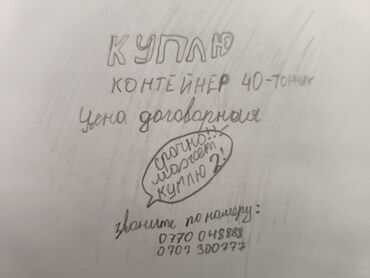 КУПЛЮ
КОНТЕЙНЕР 40-ТОННИК
Цена договорная
СРОЧНО!!!
может
КУПЛЮ 2!
звоните по номеру:
0770 048888
0707 300777